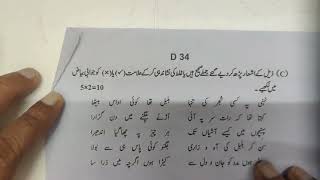 D 34
(C) ذیل کے اشعار پڑھ کر دیے گئے جملے صحیح ہیں یا غلط کی نشاندہی کر کے علامت (✓) یا (×) کو جوابی بیاض
میں لکھیے۔ 5x2=10
ٹہنی پہ کسی شجر کی تنہا بلبل تھا کوئی اداس بیٹھا
کہتا تھا کہ رات سر پہ آئی اڑنے چگنے میں دن گزارا
پہنچوں کس طرح آشیاں تک ہر چیز پہ چھا گیا اندھیرا
سن کر بلبل کی آہ و زاری جگنو کوئی پاس ہی سے بولا
ہوں مدد کو جان و دل سے کیڑا ہوں اگرچہ میں ذرا سا